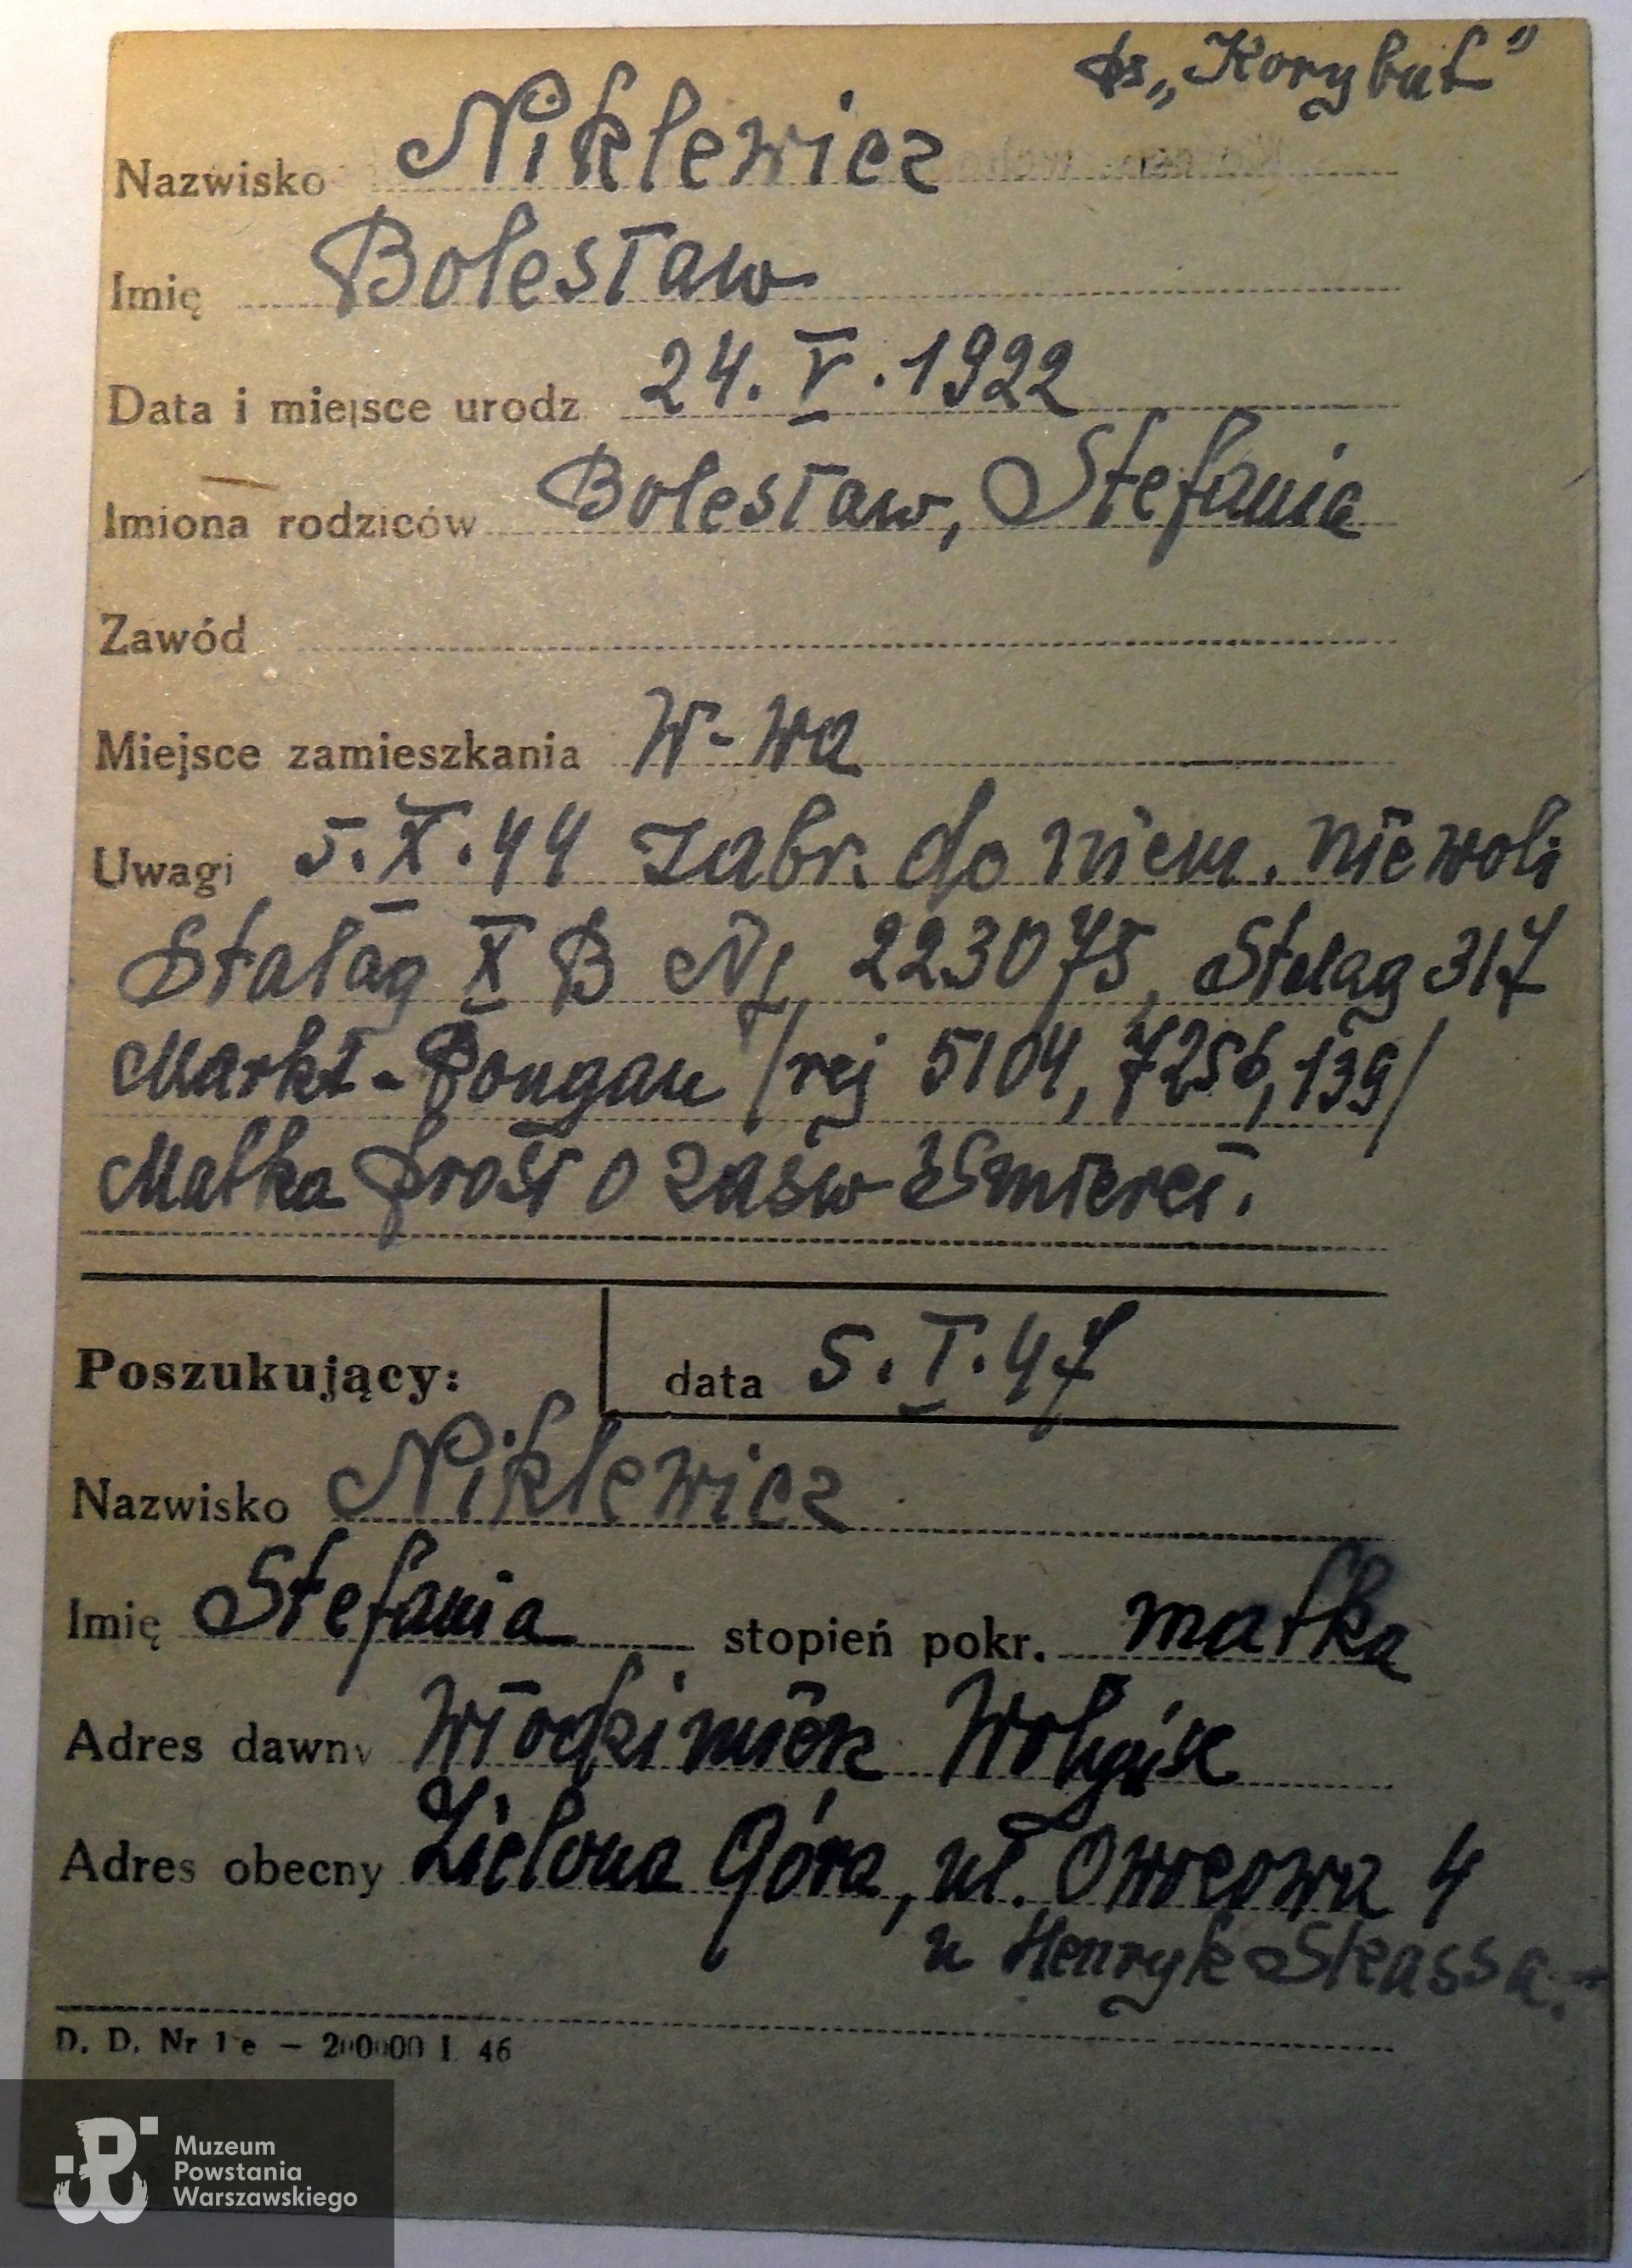 ps „Korybut”
Nazwisko Niklewicz
Imię Bolesław
Data i miejsce urodz. 24.V.1922
Imiona rodziców Bolesław, Stefania
Zawód
Miejsce zamieszkania W-wa
Uwagi 5.X.44 zabr. do niem. niewoli
Stalag X B Nr 223075, Stalag 317
Markt-Pongau /rej 5104, 7256, 139/
Matka prosi o zaśw śmierci.
Poszukujący: data 5.I.47
Nazwisko Niklewicz
Imię Stefania stopień pokr. matka
Adres dawny Włodzimierz Wołyńsk
Adres obecny Zielona Góra, ul. Owocowa 4
u Henryk
D. D. Nr 1 e — 200000 I. 46
Muzeum
Powstania
Warszawskiego